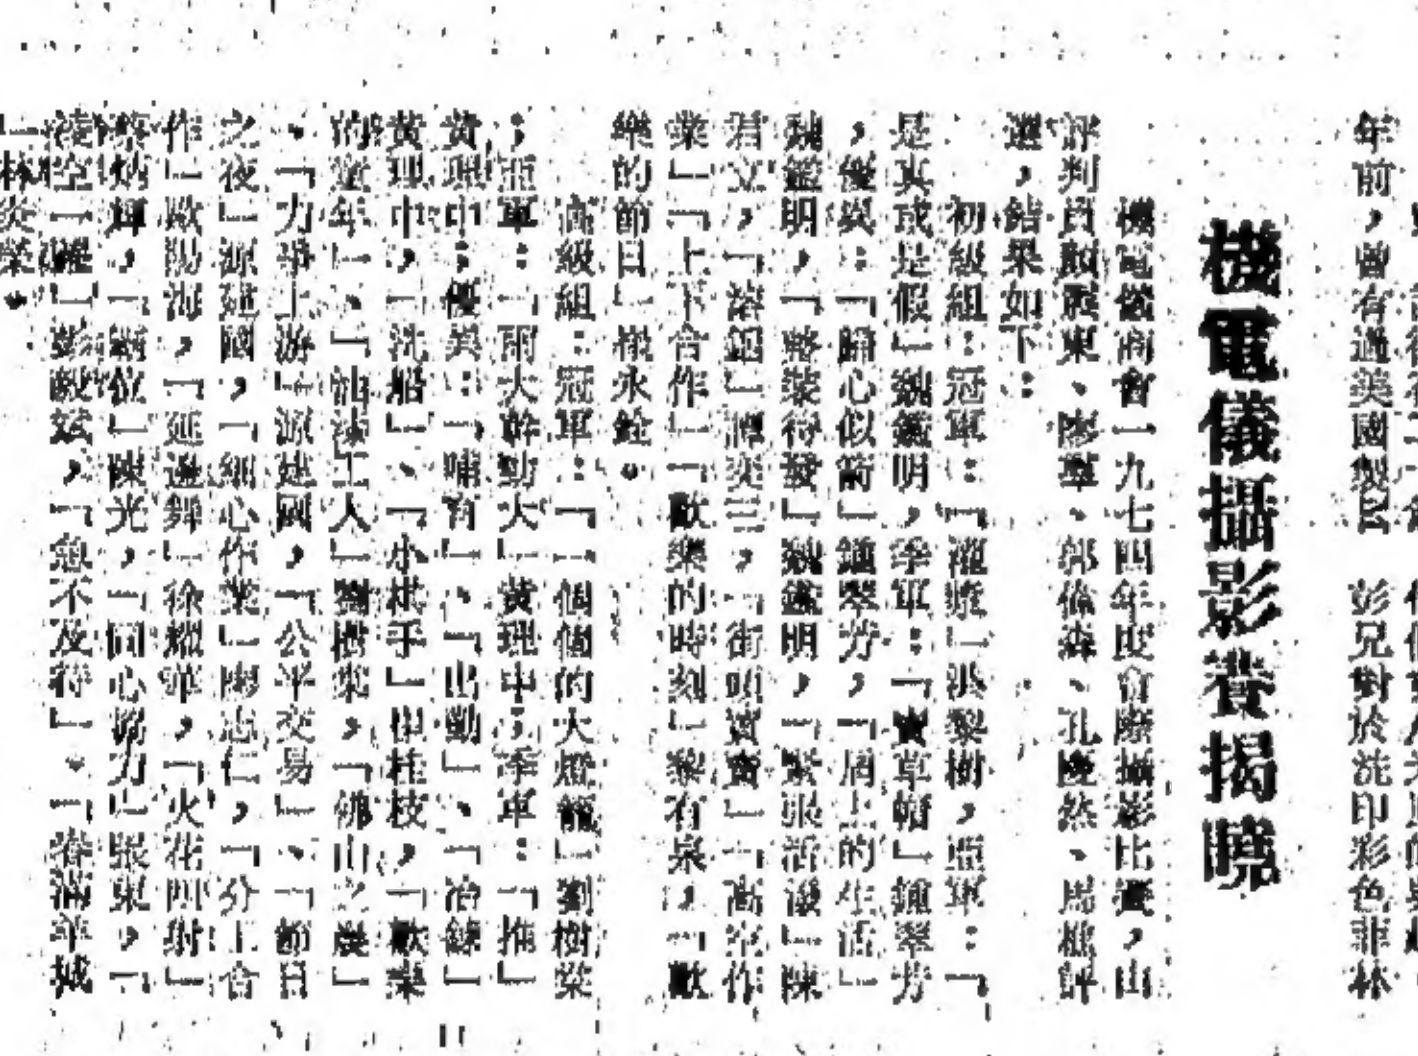 年前，曾有過美國製 彭兄對於洗印彩色菲林
機電儀攝影賽揭曉
機電儀商會一九七四年度會際攝影比賽，由
評判員 震東、廖羣、郭偉森、孔曉然、馬樵評
選，結果如下：
初級組：冠軍：「灌漿」洪黎樹，亞軍：「
是真或是假」魏鑑明，季軍：「賣草帽」鍾翠芳
，優異：「歸心似箭」鍾翠芳，「居上的生活」
魏鑑明，「整裝待發」魏鑑明，「緊張活潑」陳
君立，「溶鋁」 奕三，「街頭賣賣」「高空作
業」「上下合作」「歡樂的時刻」黎有泉，「歡
樂的節日」 永銓。
高級組：冠軍：「一個個的大燈籠」劉樹榮
；亞軍：「雨大幹勁大」黃理中；季軍：「推」
黃理中；優異：「哺育」、「出勤」、「冶鍊」
黃理中，「洗船」、「小棋手」申桂枝，「歡樂
的童年」、「油漆工人」劉樹榮，「佛山之晨」
、「力爭上游」源建國，「公平交易」、「節日
之夜」源建國，「細心作業」陳志仁，「分工合
作」歐陽海，「延邊舞」徐耀華，「火花四射」
蔡炳輝，「 位」陳光，「同心協力」張東，「
凌空一躍」彭毅斌，「急不及待」。「春滿羊城
」林炎榮。